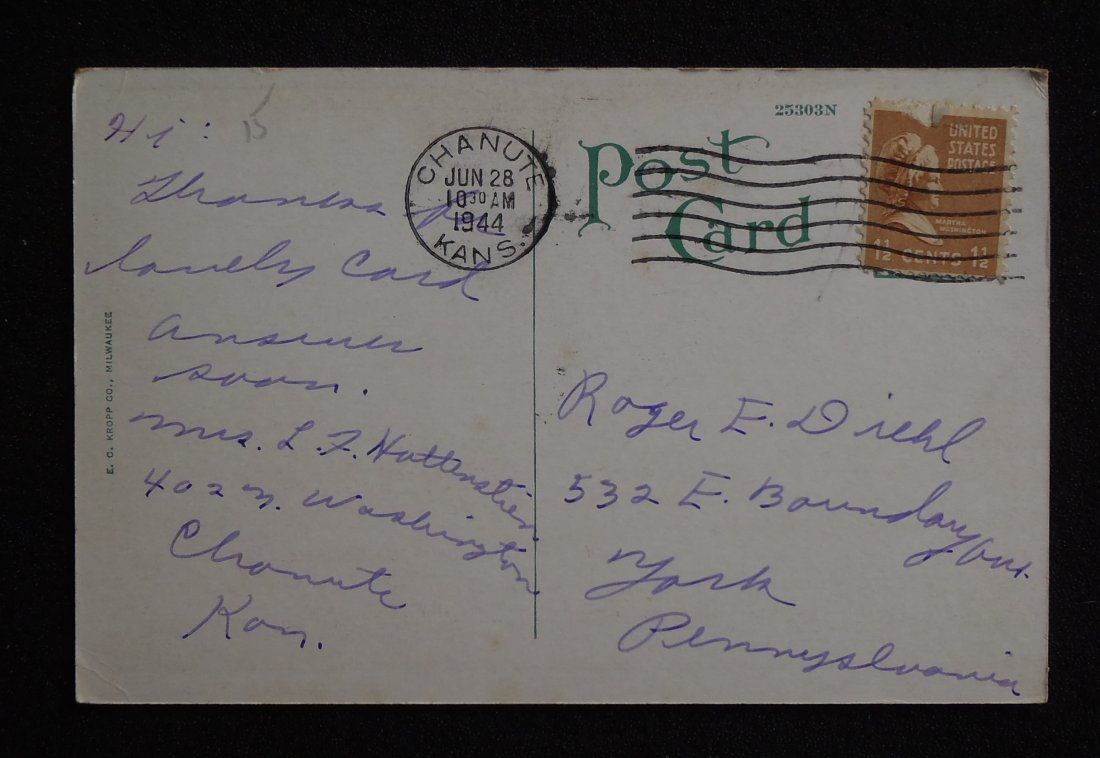 Hi:
Thanks for
lovely card
answer
soon.
Mrs. L. F. Hottenstein
402 N. Washington
Chanute
Kan.
E. C. KROPP CO., MILWAUKEE
CHANUTE
JUN 28
10 30 AM
1944
KANS.
25303N
Post
Card
UNITED
STATES
POSTAGE
MARTHA
WASHINGTON
1 1/2 CENTS 1 1/2
Roger E. Diehl
532 E. Boundary Ave.
York
Pennsylvania